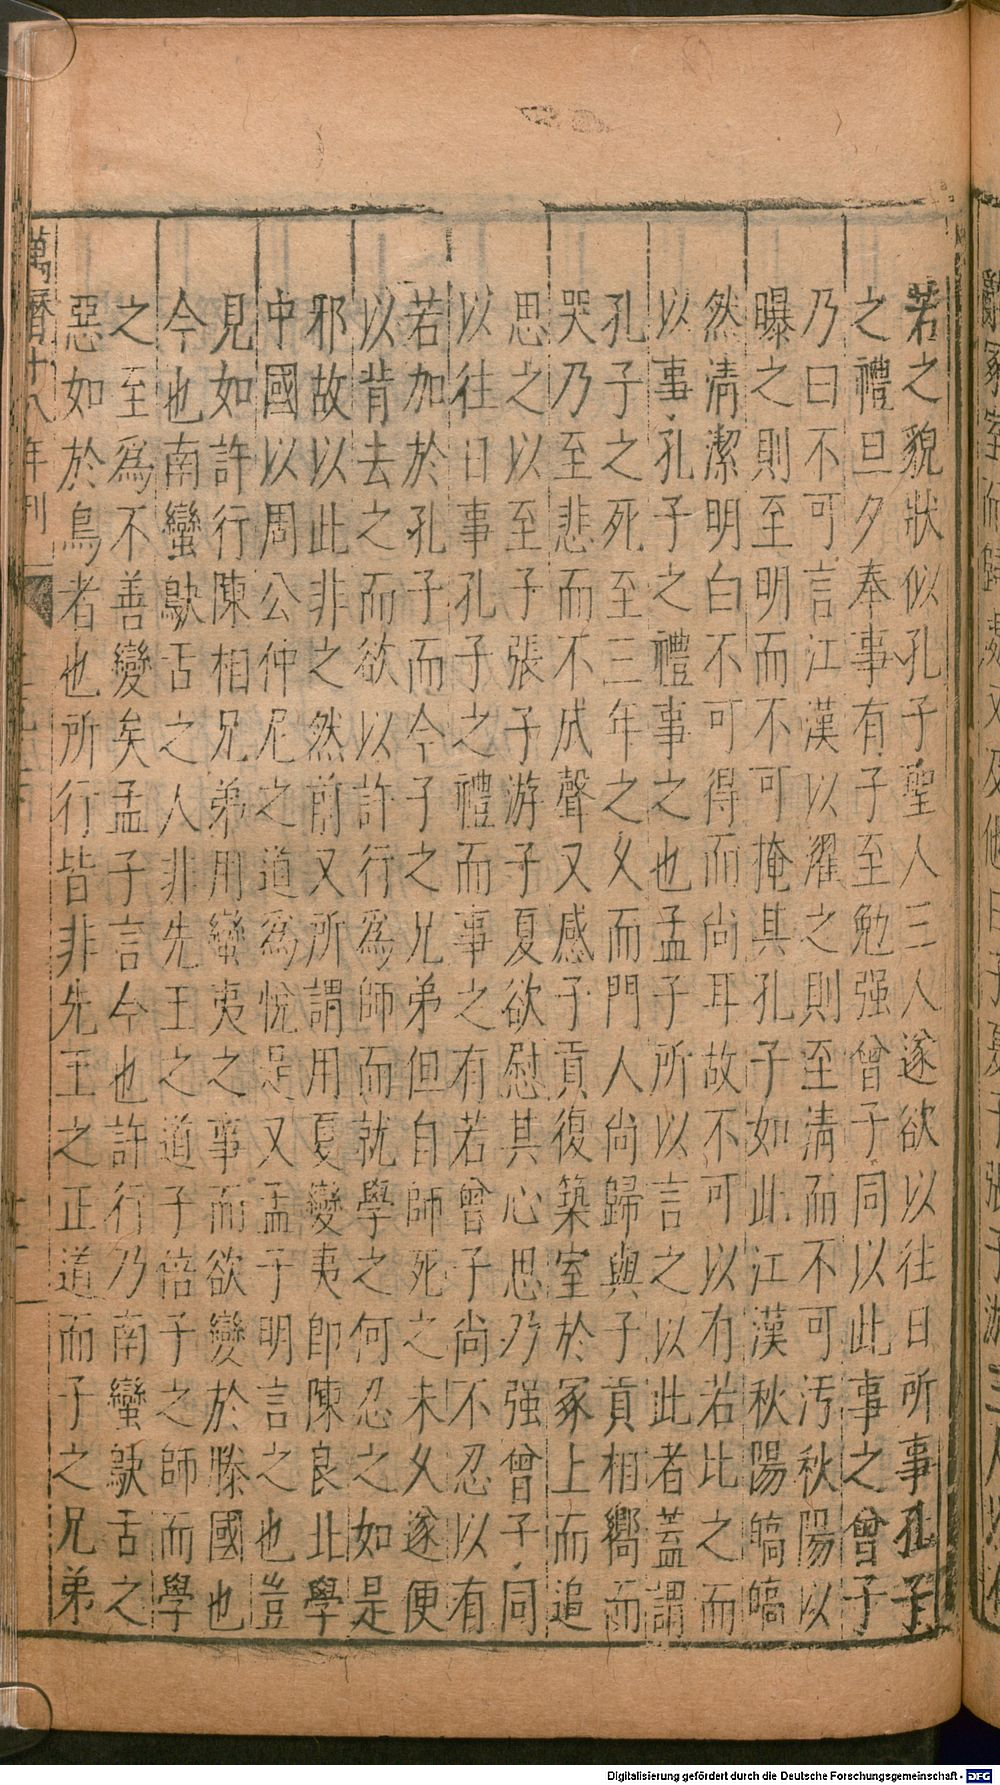 若之貌狀似孔子聖人三人遂欲以往日所事孔子
之禮旦夕奉事有子至勉强曾子同以此事之曾子
乃曰不可言江漢以濯之則至清而不可汚秋陽以
曝之則至明而不可掩其孔子如此江漢秋陽皜皜
然清潔明白不可得而尚耳故不可以有若比之而
以事孔子之禮事之也孟子所以言之以此者蓋謂
孔子之死至三年之乆而門人尚歸與子貢相嚮而
哭乃至悲而不成聲又感子貢復築室於冢上而追
思之以至子張子游子夏欲慰其心思乃强曾子同
以往日事孔子之禮而事之有若曾子尚不忍以有
若加於孔子而今子之兄弟但自師死之未乆遂便
以背去之而欲以許行爲師而就學之何忍之如是
邪故以此非之然前又所謂用夏變夷卽陳良北學
中國以周公仲尼之道爲悅足又孟子明言之也豈
見如許行陳相兄弟用蠻夷之事而欲變於滕國也
今也南蠻鴃舌之人非先王之道子倍子之師而學
之至爲不善變矣孟子言今也許行乃南蠻鴃舌之
惡如於鳥者也所行皆非先王之正道而子之兄弟
萬曆十八年刊
Digitalisierung gefördert durch die Deutsche Forschungsgemeinschaft - DFG